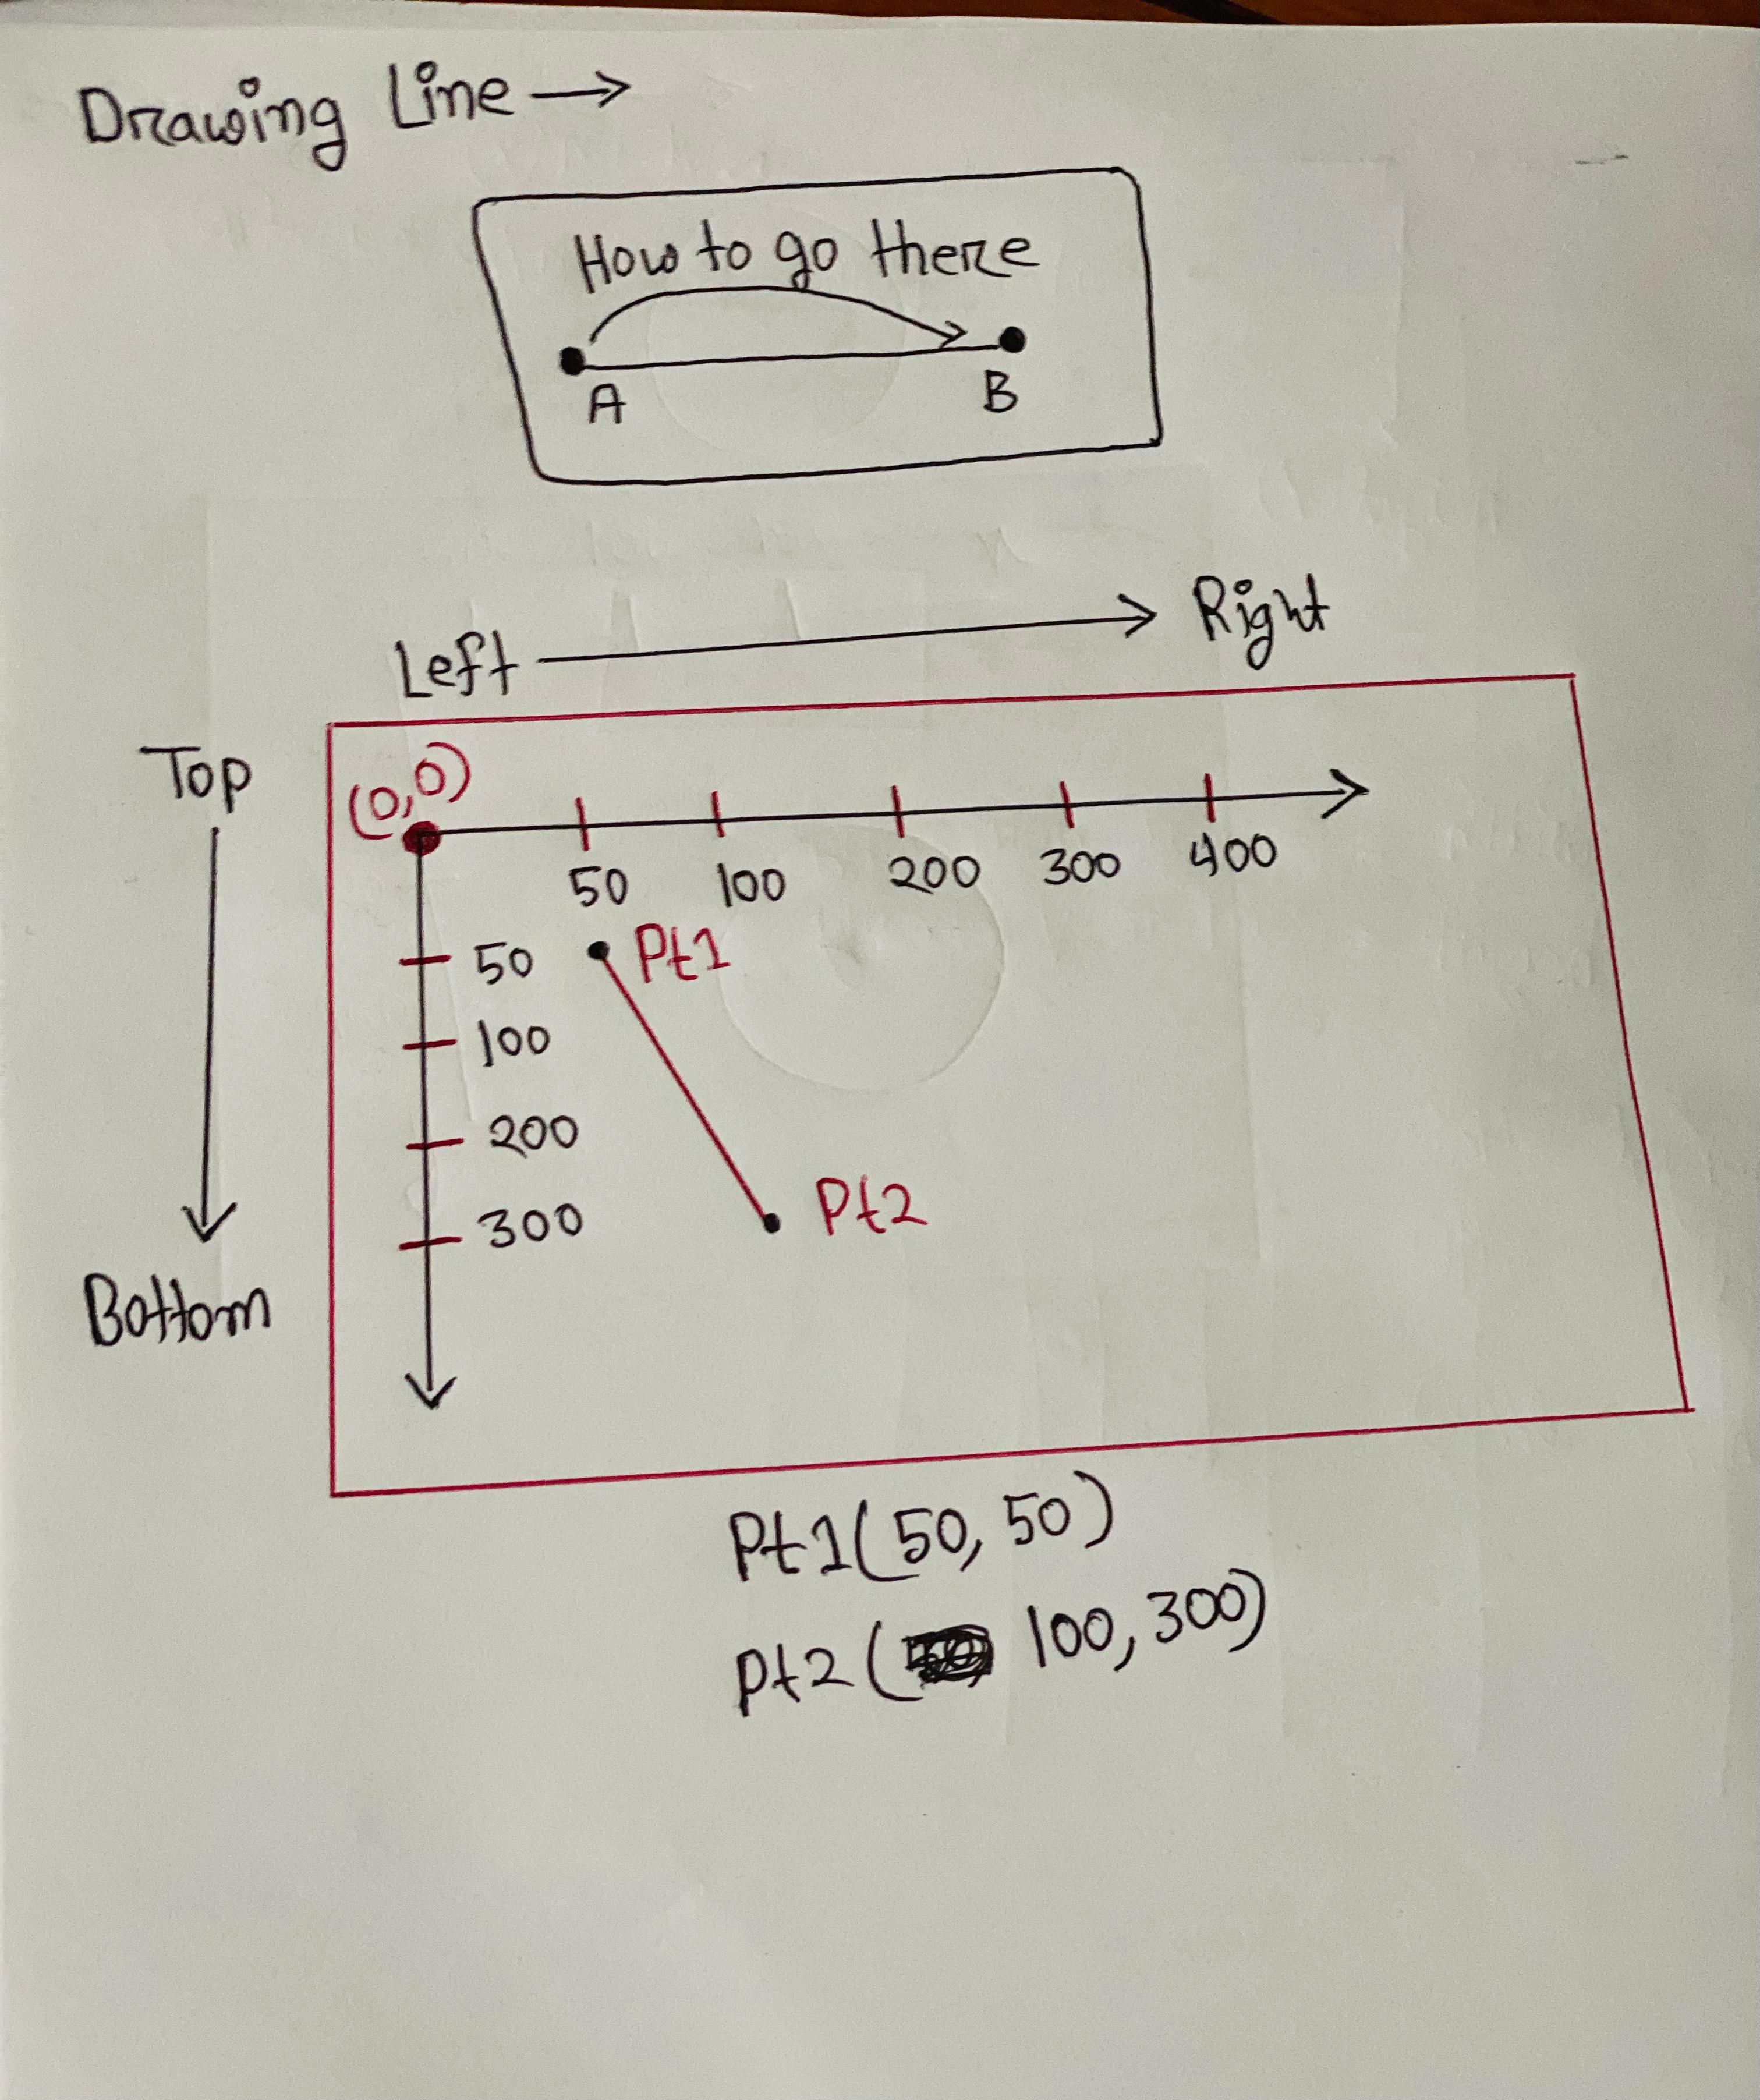 Drawing Line →
How to go there
A B
Left → Right
Top
Bottom
(0,0)
50 100 200 300 400
50
100
200
300
Pt1
Pt2
Pt1(50, 50)
Pt2 ( 100, 300)